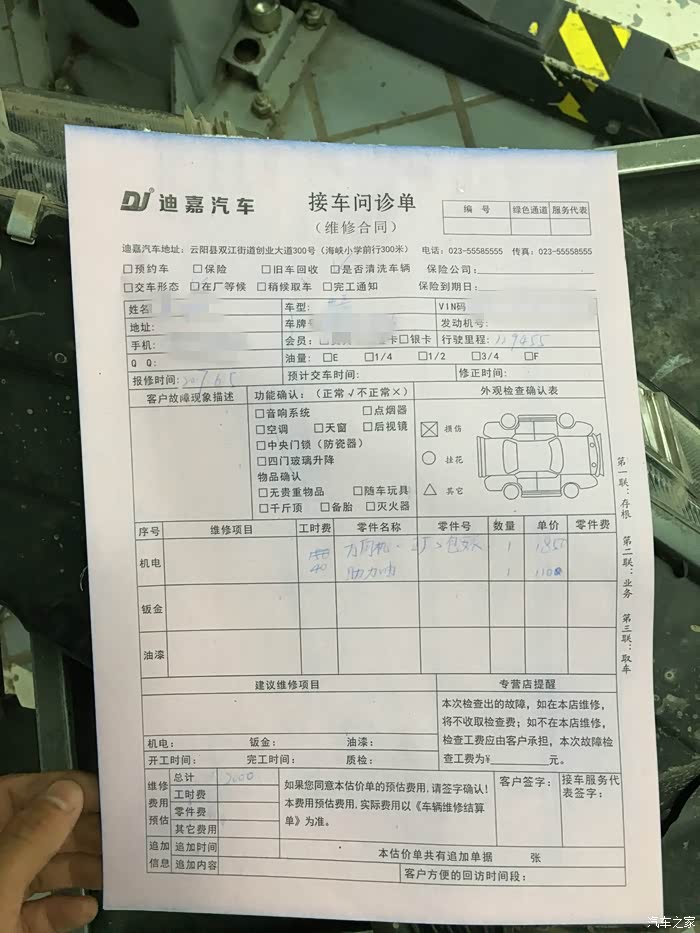 DJ 迪嘉汽车
接车问诊单
（维修合同）
编 号 绿色通道 服务代表
迪嘉汽车地址：云阳县双江街道创业大道300号（海峡小学前行300米） 电话：023-55585555 传真：023-55558555
□预约车 □保险 □旧车回收 □是否清洗车辆 保险公司：
□交车形态 □在厂等候 □稍候取车 □完工通知 保险到期日：
姓名 车型： VIN码
地址： 车牌 发动机号：
手机： 会员： 卡□银卡 行驶里程：119455
Q Q： 油量： □E □1/4 □1/2 □3/4 □F
报修时间： 预计交车时间： 修正时间：
客户故障现象描述 功能确认：（正常√不正常×） 外观检查确认表
□音响系统 □点烟器
□空调 □天窗 □后视镜
□中央门锁（防盗器）
□四门玻璃升降
物品确认
□无贵重物品 □随车玩具
□千斤顶 □备胎 □灭火器
损伤
挂花
其它
第一联：存根 第二联：业务 第三联：取车
序号 维修项目 工时费 零件名称 零件号 数量 单价 零件费
机电 方向机 1 1850
40 助力油 1 110
钣金
油漆
建议维修项目 专营店提醒
本次检查出的故障，如在本店维修，
将不收取检查费；如不在本店维修，
检查工费应由客户承担，本次故障检
查工费为￥ 元。
机电： 钣金： 油漆：
开工时间： 完工时间： 质检：
维修费用预估 总计 2000
工时费
零件费
其它费用
如果您同意本估价单的预估费用，请签字确认！
本费用预估费用，实际费用以《车辆维修结算
单》为准。
客户签字： 接车服务代表签字：
追加信息 追加时间 本估价单共有追加单据 张
追加内容 客户方便的回访时间段：
汽车之家